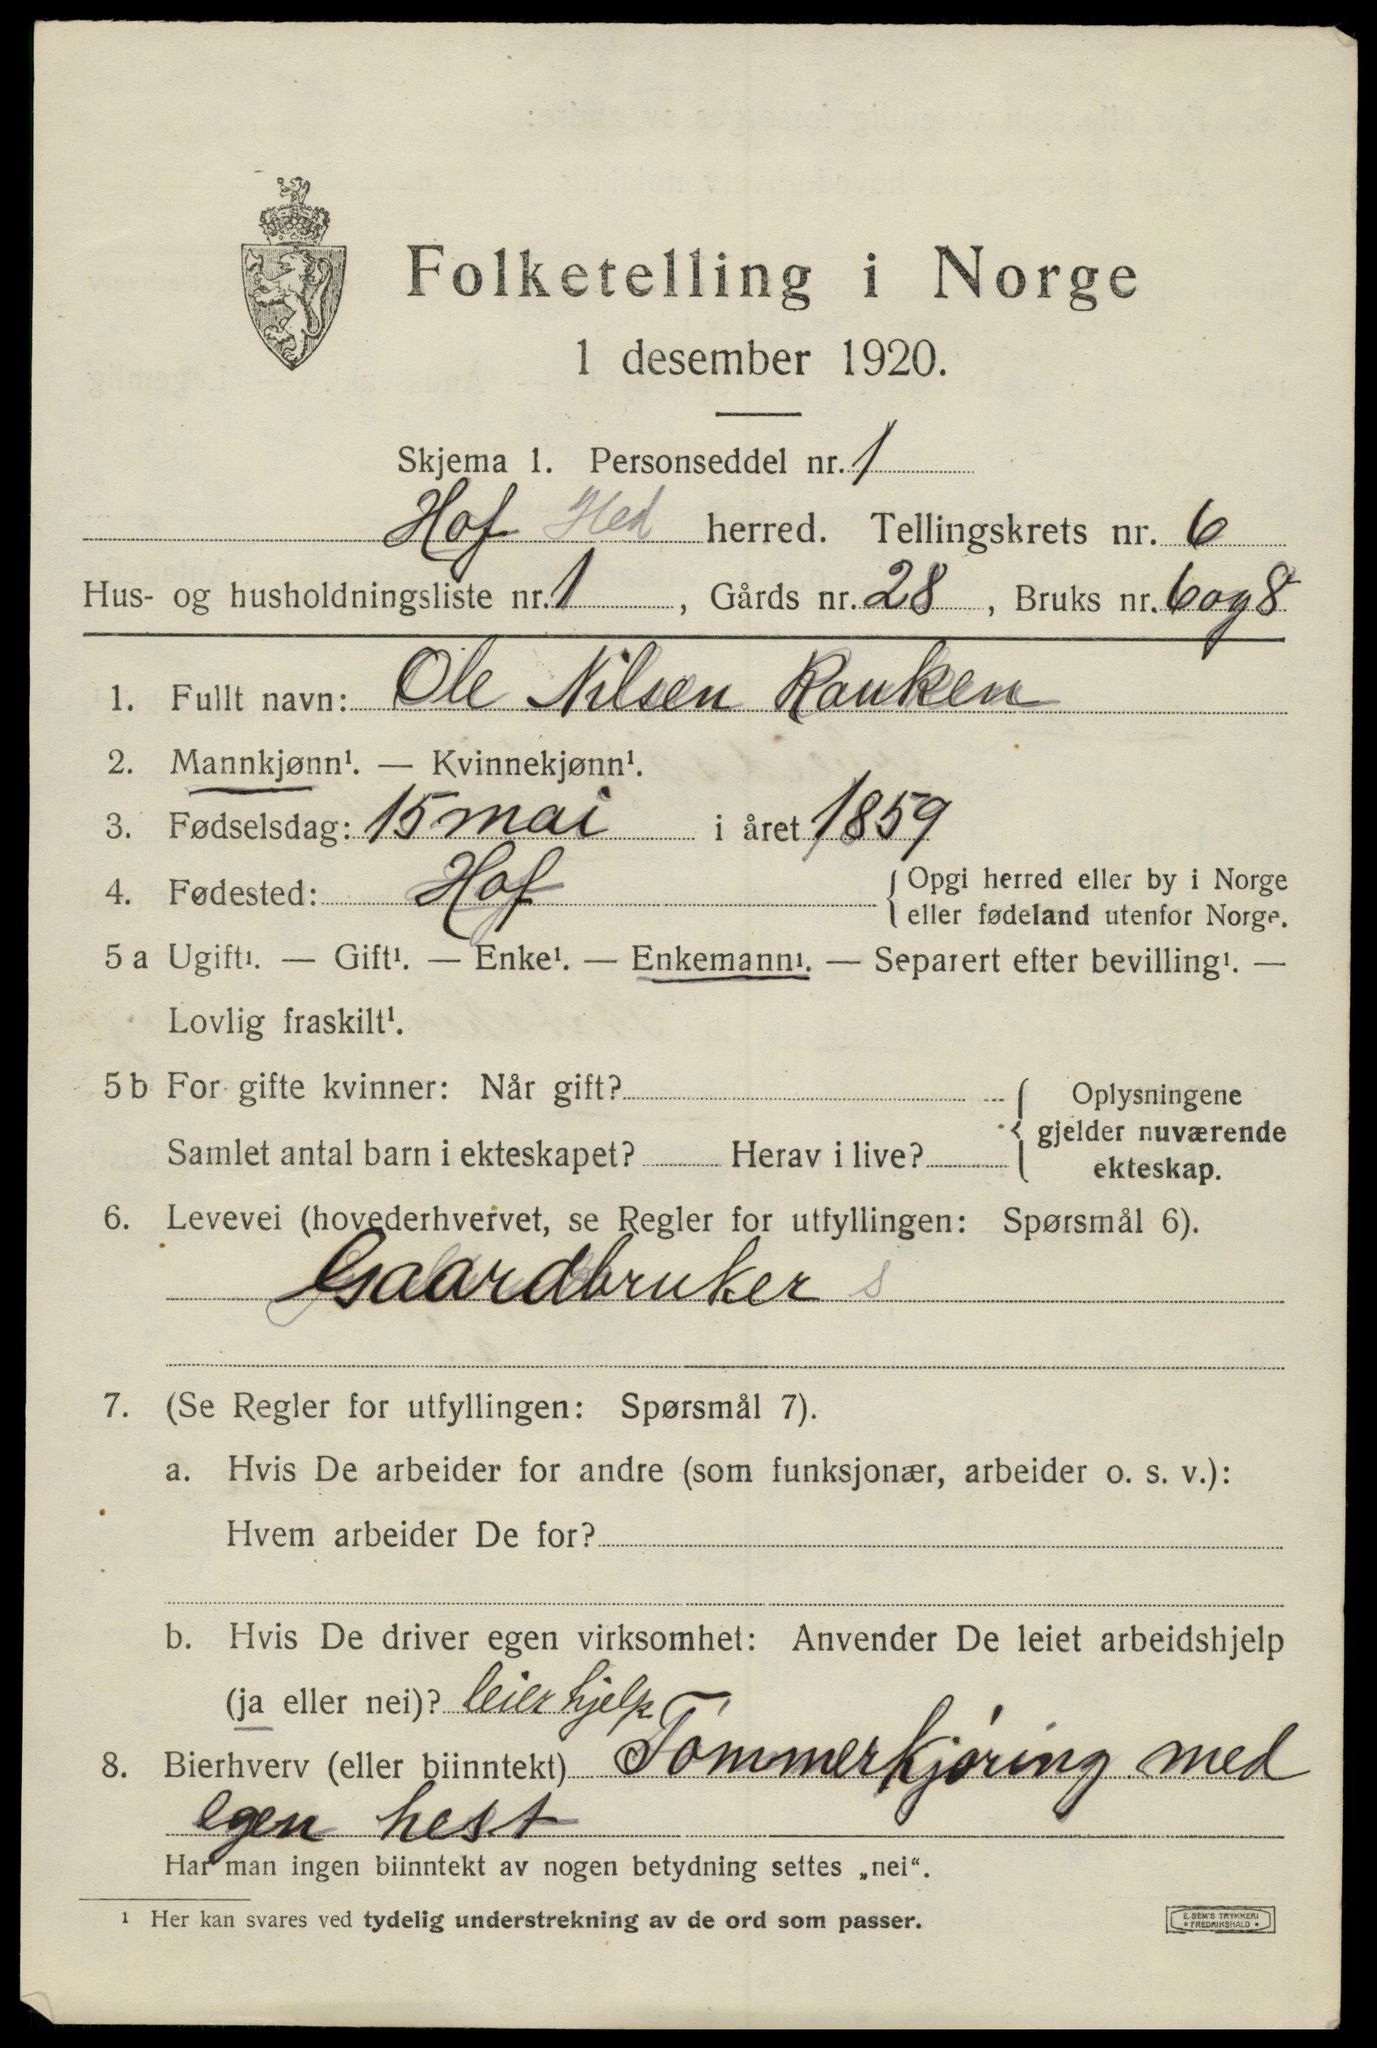 Folketelling i Norge
1 desember 1920.
Skjema 1. Personseddel nr. 1
Hof Hed herred. Tellingskrets nr. 6
Hus- og husholdningsliste nr. 1, Gårds nr. 28, Bruks nr. 6 og 8
1. Fullt navn: Ole Nilsen Rauken
2. Mannkjønn¹. — Kvinnekjønn¹.
3. Fødselsdag: 15 mai i året 1859
4. Fødested: Hof { Opgi herred eller by i Norge
eller fødeland utenfor Norge.
5 a Ugift¹. — Gift¹. — Enke¹. — Enkemann¹. — Separert efter bevilling¹. —
Lovlig fraskilt¹.
5 b For gifte kvinner: Når gift? { Oplysningene
gjelder nuværende
Samlet antal barn i ekteskapet? Herav i live?
ekteskap.
6. Levevei (hovederhvervet, se Regler for utfyllingen: Spørsmål 6).
Gaardbruker s
7. (Se Regler for utfyllingen: Spørsmål 7).
a. Hvis De arbeider for andre (som funksjonær, arbeider o. s. v.):
Hvem arbeider De for?
b. Hvis De driver egen virksomhet: Anvender De leiet arbeidshjelp
(ja eller nei)? leier hjelp
8. Bierhverv (eller biinntekt) Tømmerkjøring med
egen hest
Har man ingen biinntekt av nogen betydning settes „nei“.
¹ Her kan svares ved tydelig understrekning av de ord som passer.
E. SEM'S TRYKKERI
• FREDRIKSHALD •